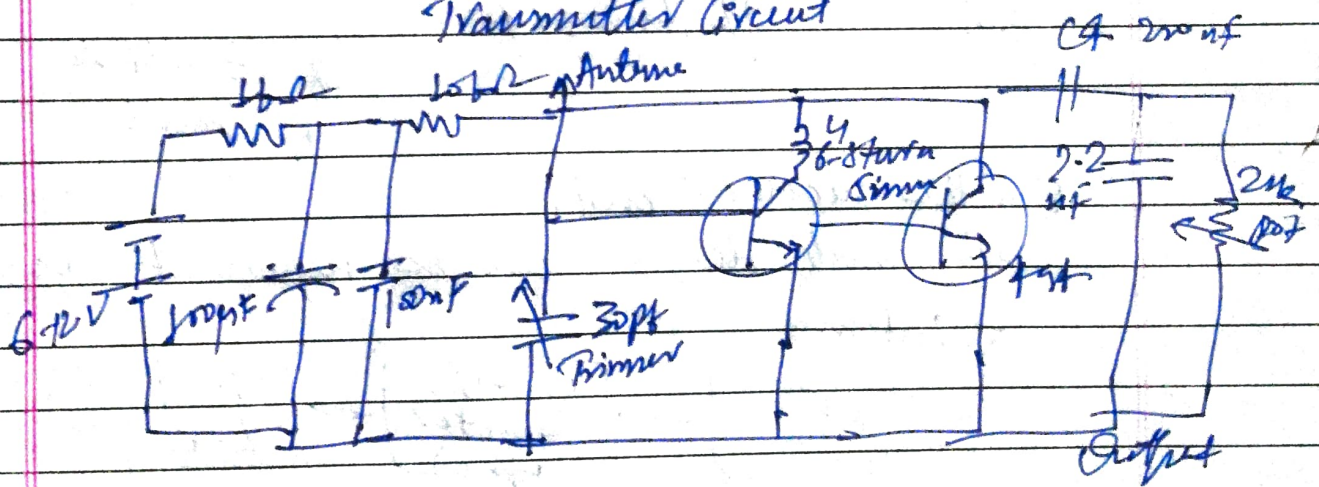 Transmitter Circuit
C4 200nf
1kΩ
10kΩ
Antenne
4
36-8turn
5imm
2.2
nf
2k
pot
6-12V
100µF
100nF
30pf
Trimmer
Output